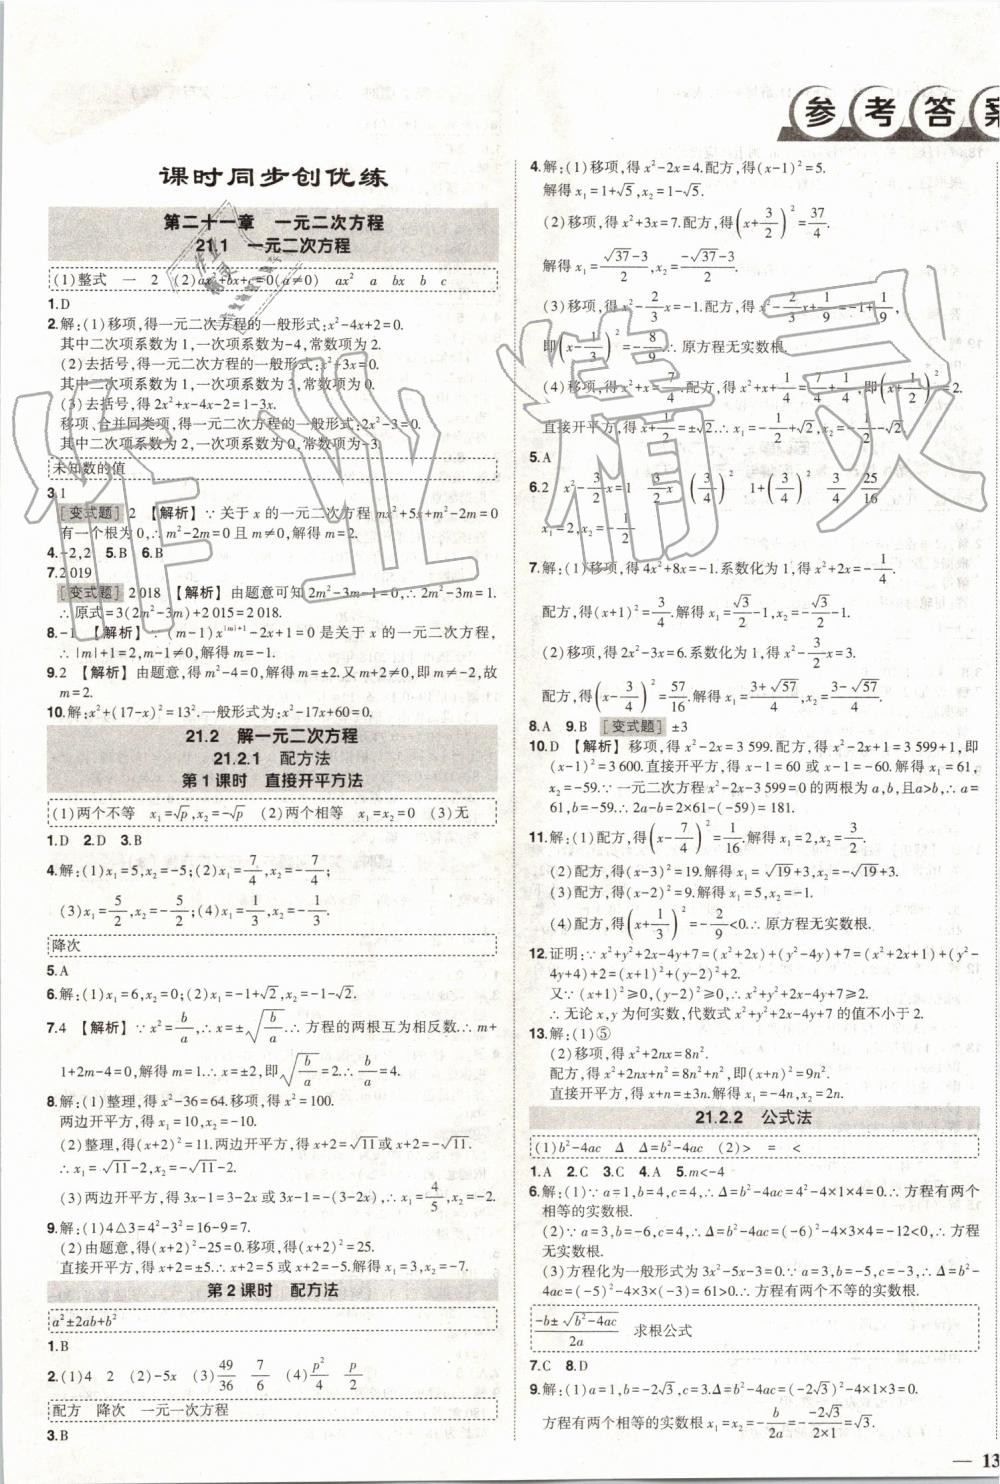 参考答案
课时同步创优练
第二十一章 一元二次方程
21.1 一元二次方程
(1)整式 一 2 (2)ax²+bx+c=0(a≠0) ax² a bx b c
1.D
2.解:(1)移项,得一元二次方程的一般形式:x²-4x+2=0.
其中二次项系数为1,一次项系数为-4,常数项为2.
(2)去括号,得一元二次方程的一般形式:x²+3x=0.
其中二次项系数为1,一次项系数为3,常数项为0.
(3)去括号,得2x²+x-4x-2=1-3x.
移项、合并同类项,得一元二次方程的一般形式:2x²-3=0.
其中二次项系数为2,一次项系数为0,常数项为-3.
未知数的值
3.1
[变式题] 2 【解析】∵关于x的一元二次方程mx²+5x+m²-2m=0
有一个根为0,∴m²-2m=0且m≠0,解得m=2.
4.-2,2 5.B 6.B
7.2 019
[变式题] 2 018 【解析】由题意可知2m²-3m-1=0,∴2m²-3m=1.
∴原式=3(2m²-3m)+2 015=2 018.
8.-1 【解析】∵(m-1)x^|m|+1-2x+1=0是关于x的一元二次方程,
∴|m|+1=2,m-1≠0,解得m=-1.
9.2 【解析】由题意,得m²-4=0,解得m=±2.又m+2≠0,即m≠-2,故
m=2.
10.解:x²+(17-x)²=13².一般形式为:x²-17x+60=0.
21.2 解一元二次方程
21.2.1 配方法
第1课时 直接开平方法
(1)两个不等 x₁=√p,x₂=-√p (2)两个相等 x₁=x₂=0 (3)无
1.D 2.D 3.B
4.解:(1)x₁=5,x₂=-5;(2)x₁=7/4,x₂=-7/4;
(3)x₁=5/2,x₂=-5/2;(4)x₁=1/3,x₂=-1/3.
降次
5.A
6.解:(1)x₁=6,x₂=0;(2)x₁=-1+√2,x₂=-1-√2.
7.4 【解析】∵x²=b/a,∴x=±√(b/a).∴方程的两根互为相反数.∴m+
1+2m-4=0,解得m=1.∴x=±2,即√(b/a)=2.∴b/a=4.
8.解:(1)整理,得x²-36=64.移项,得x²=100.
两边开平方,得x₁=10,x₂=-10.
(2)整理,得(x+2)²=11.两边开平方,得x+2=√11或x+2=-√11.
∴x₁=√11-2,x₂=-√11-2.
(3)两边开平方,得3x-1=3-2x或3x-1=-(3-2x).∴x₁=4/5,x₂=-2.
9.解:(1)4△3=4²-3²=16-9=7.
(2)由题意,得(x+2)²-25=0.移项,得(x+2)²=25.
直接开平方,得x+2=±5.∴x+2=5或x+2=-5.解得x₁=3,x₂=-7.
第2课时 配方法
a²±2ab+b²
1.B
2.(1)4 2 (2)-5x (3)49/36 7/6 (4)p²/4 p/2
配方 降次 一元一次方程
3.B
4.解:(1)移项,得x²-2x=4.配方,得(x-1)²=5.
解得x₁=1+√5,x₂=1-√5.
(2)移项,得x²+3x=7.配方,得(x+3/2)²=37/4.
解得x₁=(√37-3)/2,x₂=(-√37-3)/2.
(3)移项,得x²-2/3x=-1.配方,得x²-2/3x+1/9=-1+1/9,
即(x-1/3)²=-8/9.∴原方程无实数根.
(4)移项,得x²+x=7/4.配方,得x²+x+1/4=7/4+1/4,即(x+1/2)²=2.
直接开平方,得x+1/2=±√2.∴x₁=-1/2+√2,x₂=-1/2-√2.
5.A
6.2 x²-3/2x=1 3/2x (3/4)² 1+(3/4)² 3/4 25/16
x₁=2,x₂=-1/2
7.解:(1)移项,得4x²+8x=-1.系数化为1,得x²+2x=-1/4.
配方,得(x+1)²=3/4.解得x₁=√3/2-1,x₂=-√3/2-1.
(2)移项,得2x²-3x=6.系数化为1,得x²-3/2x=3.
配方,得(x-3/4)²=57/16.解得x₁=(3+√57)/4,x₂=(3-√57)/4.
8.A 9.B [变式题] ±3
10.D 【解析】移项,得x²-2x=3 599.配方,得x²-2x+1=3 599+1,即
(x-1)²=3 600.直接开平方,得x-1=60或x-1=-60.解得x₁=61,
x₂=-59.∵一元二次方程x²-2x-3 599=0的两根为a,b,且a>b,∴a=
61,b=-59.∴2a-b=2×61-(-59)=181.
11.解:(1)配方,得(x-7/4)²=1/16.解得x₁=2,x₂=3/2.
(2)配方,得(x-3)²=19.解得x₁=√19+3,x₂=-√19+3.
(3)配方,得(x-2)²=9.解得x₁=5,x₂=-1.
(4)配方,得(x+1/3)²=-2/9<0.∴原方程无实数根.
12.证明:∵x²+y²+2x-4y+7=(x²+2x)+(y²-4y)+7=(x²+2x+1)+(y²-
4y+4)+2=(x+1)²+(y-2)²+2.
又∵(x+1)²≥0,(y-2)²≥0,∴x²+y²+2x-4y+7≥2.
∴无论x,y为何实数,代数式x²+y²+2x-4y+7的值不小于2.
13.解:(1)⑤
(2)移项,得x²+2nx=8n².
配方,得x²+2nx+n²=8n²+n²,即(x+n)²=9n².
直接开平方,得x+n=±3n.∴x₁=-4n,x₂=2n.
21.2.2 公式法
(1)b²-4ac Δ Δ=b²-4ac (2)> = <
1.A 2.C 3.C 4.A 5.m<-4
6.解:(1)∵a=1,b=4,c=4,∴Δ=b²-4ac=4²-4×1×4=0.∴方程有两个
相等的实数根.
(2)∵a=3,b=-6,c=4,∴Δ=b²-4ac=(-6)²-4×3×4=-12<0,∴方程
无实数根.
(3)方程化为一般形式为3x²-5x-3=0.∵a=3,b=-5,c=-3,∴Δ=b²-
4ac=(-5)²-4×3×(-3)=61>0.∴方程有两个不等的实数根.
(-b±√(b²-4ac))/2a 求根公式
7.C 8.D
9.解:(1)a=1,b=-2√3,c=3.Δ=b²-4ac=(-2√3)²-4×1×3=0.
方程有两个相等的实数根x₁=x₂=-b/2a=-(-2√3)/(2×1)=√3.
— 13
作业精灵